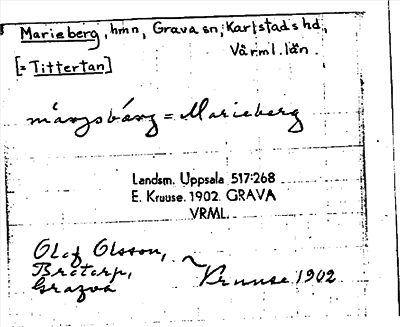 Marieberg, hmn, Grava sn, Karlstads hd,
Värml. län.
[= Tittertan]
mårgsbärg = Marieberg
Landsm. Uppsala 517:268
E. Kruuse. 1902. GRAVA
VRML.
Olof Olsson,
Bråtorp,
Grava
~ Kruuse 1902